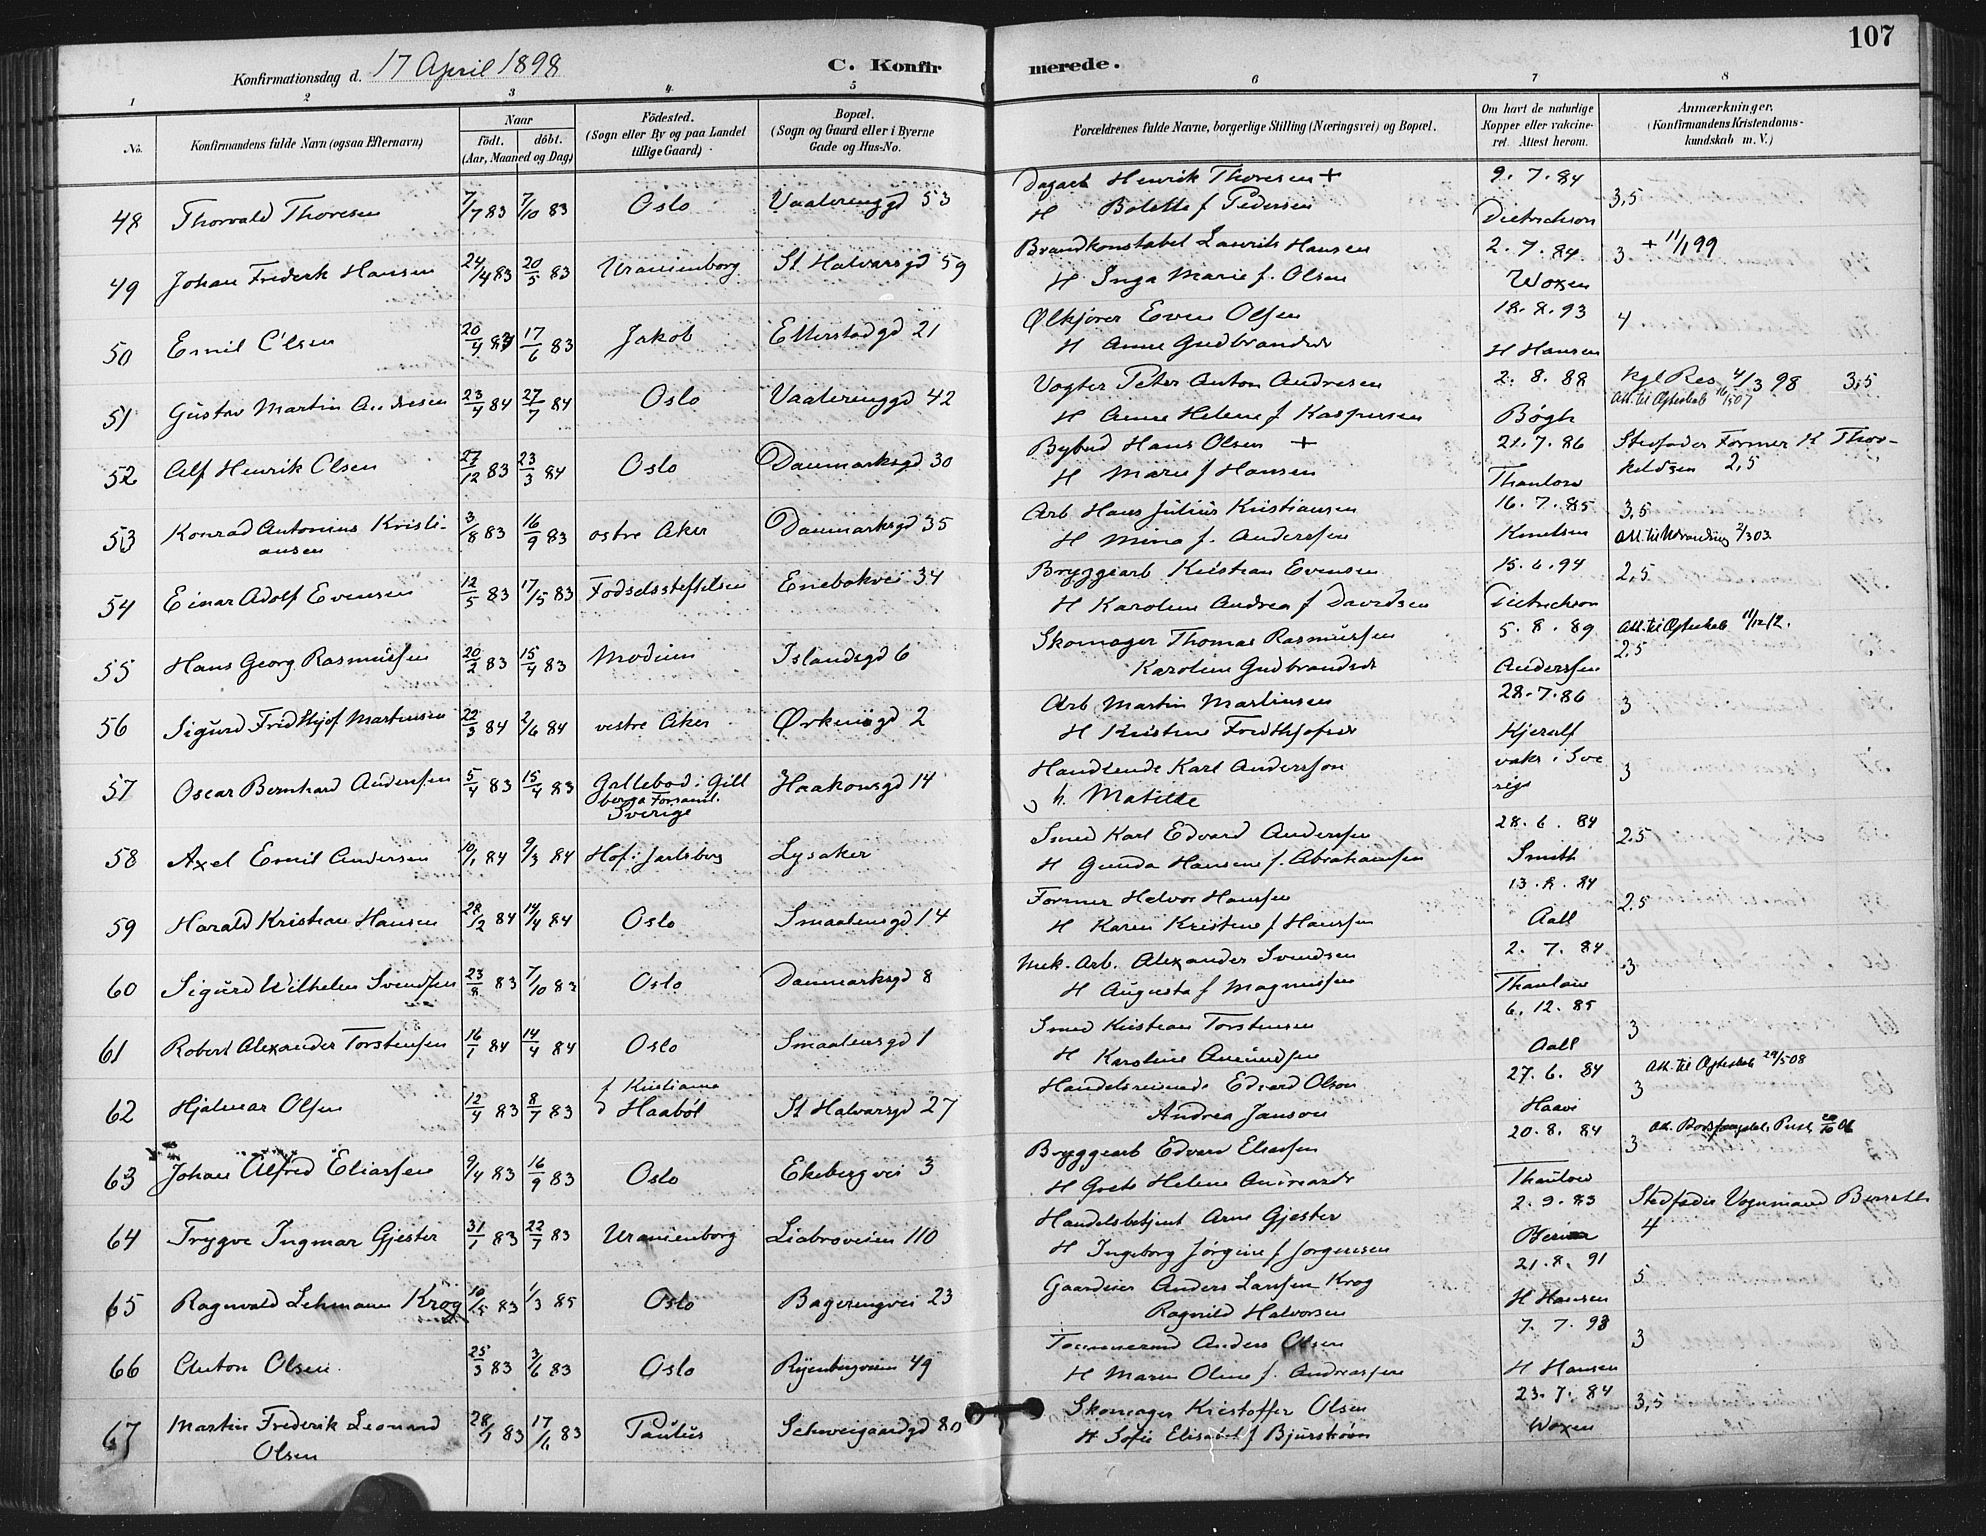 107
Konfirmationsdag d. 17 April 1898
C. Konfirmerede.
1 2 3 4. 5 6 7 8
No.
Konfirmandens fulde Navn (ogsaa Efternavn)
Naar
födt. döbt.
(Aar, Maaned og Dag)
Födested.
(Sogn eller By og paa Landet
tillige Gaard)
Bopæl.
(Sogn og Gaard eller i Byerne
Gade og Hus-No.
Forældrenes fulde Navne, borgerlige Stilling (Næringsvei) og Bopæl.
Om havt de naturlige
Kopper eller vakcine-
ret. Attest herom.
Anmærkninger.
(Konfirmandens Kristendoms-
kundskab m. V.)
48 Thorvald Thoresen 7/7 83 7/10 83 Oslo Vaaleringgd 53 Henrik Thoresen + 9. 7. 84 3,5
H Bolette f Pedersen Dietrichson
49 Johan Frederk Hansen 24/4 83 20/5 83 Uranienborg St Halvarsgd 59 Brandkonstabel Laurits Hansen 2. 7. 84 3 + 11/1 99
H Inga Marie f. Olsen Woxen
50 Emil Olsen 20/4 83 17/6 83 Jakob Etterstadgd 21 Ølkjører Even Olsen 18. 8. 93 4
H Anne Gudbrandsdr H Hansen
51 Gustav Martin Andresen 23/4 84 27/7 84 Oslo Vaaleringgd 42 Vogter Peter Anton Andresen 2. 8. 88 Kgl Res 4/3 98 3,5
Att. til Ægteskab 16/5 07
H Anne Helene f Kaspersen Bögh
52 Alf Henrik Olsen 27/12 83 23/3 84 Oslo Danmarksgd 30 Bybud Hans Olsen + 21. 7. 86 Stedfader Former K Thor-
keldsen 2,5
H Maren f Hansen Thaulow
53 Konrad Antonius Kristi-
ansen 3/8 83 16/9 83 ostre Aker Danmarksgd 35 Arb Hans Julius Kristiansen 16. 7. 85 3,5
H Mina f. Anderssen Knudsen Att. til Udvandring 2/3 03
54 Einar Adolf Evensen 12/5 83 17/5 83 Fodselsstiftelsen Enebakvei 34 Bryggearb Kristian Evensen 15. 6. 94 2,5
H Karoline Andrea f Davidsen Dietrichson
55 Hans Georg Rasmussen 20/2 83 15/4 83 Modum Islandsgd 6 Skomager Thomas Rasmussen 5. 8. 89 Att. til Ægteskab 11/12 12.
2,5
Karoline Gudbrandsdr Anderssen
56 Sigurd Fridthjof Martinsen 22/3 84 2/6 84 vestre Aker Ørknögd 2 Arb Martin Martinsen 28. 7. 86 3
H Kristine Fredthjofsdr Kjerulf
57 Oscar Bernhard Anderssen 5/4 83 15/4 83 Gallebod i Gill
berga Forsaml.
Sverige Haakonsgd 14 Handlende Karl Andersson vaks i Sve
rige 3
h. Matilde
58 Axel Emil Andersen 10/1 84 9/3 84 Hof i Jarlsberg Lysaker Smed Karl Edvard Anderssen 28. 6. 84 2.5
H Gunda Hansine f. Abrahamsen Smith
59 Harald Kristian Hansen 28/12 84 14/4 84 Oslo Smaalensgd 14 Former Helvor Hanssen 13. 8. 84 2.5
H Karen Kristine f Hanssen Aall
60 Sigurd Wilhelm Svendsen 23/8 83 7/10 83 Oslo Danmarksgd 8 Mek. Arb. Alexander Svendsen 2. 7. 84 3
H Augusta f Magnussen Thaulow
61 Robert Alexander Torstensen 16/1 84 14/4 84 Oslo Smaalensgd 1 Smed Kristian Torstensen 6. 12. 85 3
H Karoline Amundsen Aall
62 Hjalmar Olsen 12/4 83 8/7 83 f Kristiania
d Haaböl St Halvarsgd 27 Handelsreisende Edvard Olson 27. 6. 84 3 Att. til Ægteskab 29/5 08
Andrea Janson Haavi
63 Johan Alfred Eliassen 9/4 83 16/9 83 Oslo Ekebergvei 3 Bryggearb Edvard Eliassen 20. 8. 84 3
H Grete Helene Andreasdr Thaulow
64 Trygve Ingmar Gjester 31/1 83 22/7 83 Uranienborg Liabroveien 110 Handelsbetjent Arne Gjester 2. 9. 83 Stedfader Vognmand
4
H Ingeborg Jørgine f Jørgensen
65 Ragnvald Lehmann Krog 10/5 83 1/3 85 Oslo Bageringvei 23 Gaardeier Anders Larssen Krog 21. 8. 91 5
Ragnild Halvorsen H Hansen
66 Anton Olsen 25/3 83 3/6 83 Oslo Ryenbergveien 49 Tømmermand Anders Olsen 7. 7. 98 3
H Maren Oline f. Andreassen H Hansen
67 Martin Frederik Leonard
Olsen 28/1 83 17/6 83 Paulus Schweigaardgd 80 Skomager Kristoffer Olsen 23. 7. 84 3,5
H Sofie Elisabet f Bjurström Woxen